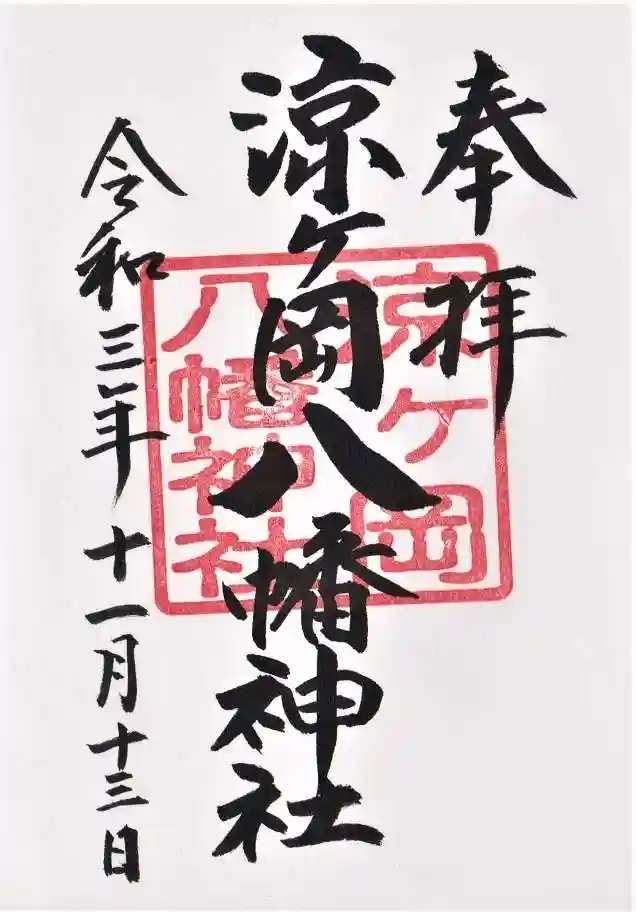 奉拝
涼ヶ岡八幡神社
令和三年十一月十三日
涼ケ岡
八幡神社